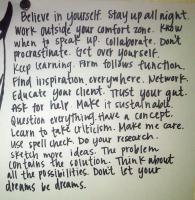 Believe in yourself. Stay up all night.
Work outside your comfort zone. Know
when to speak up. Collaborate. Don't
procrastinate. Get over yourself.
Keep learning. Form follows function.
Find inspiration everywhere. Network.
Educate your client. Trust your gut.
Ask for help. Make it sustainable.
Question everything. Have a concept.
Learn to take criticism. Make me care.
Use spell check. Do your research.
Sketch more ideas. The problem
contains the solution. Think about
all the possibilities. Don't let your
dreams be dreams.